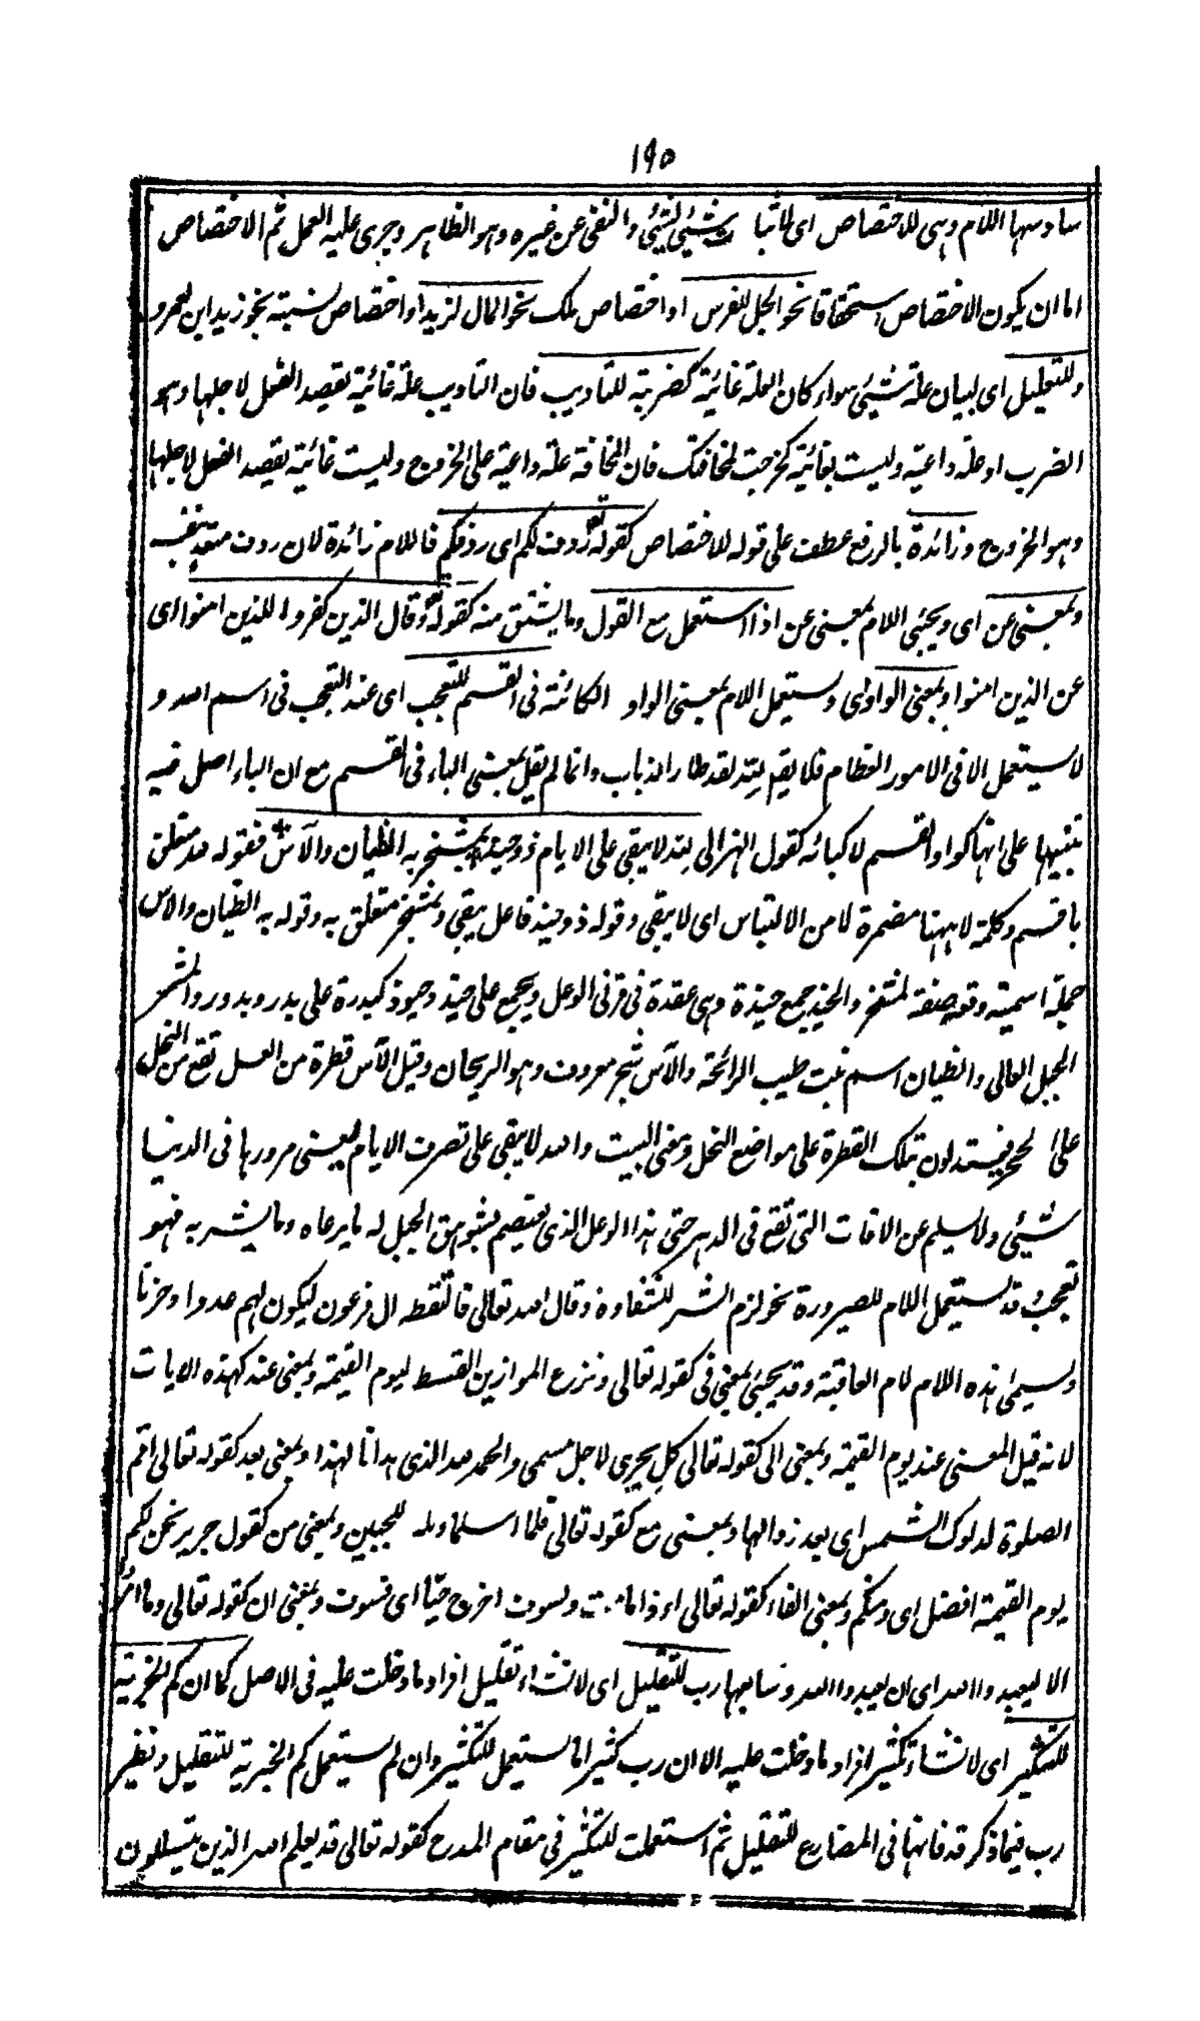 ١٩٥
سادسها اللام وهى للاختصاص اى لاثبات شيئ لشيئ والنفى عن غيره وهو الظاهر وجرى عليه العمل ثم الاختصاص
اما ان يكون الاختصاص استحقاقا نحو الجل للفرس او اختصاص ملك نحو المال لزيد او اختصاص نسبة نحو زيد ابن لعمرو
وللتعليل اى لبيان علة شيئ سواء كان العلة غائية كضربته للتاديب فان التاديب علة غائية يقصد الفعل لاجلها وهو
الضرب او علة داعية وليست بغائية كخرجت لمخافتك فان المخافة علة داعية على الخروج وليست غائية يقصد الفعل لاجلها
وهو الخروج وزائدة بالرفع عطف على قوله للاختصاص كقوله تع ردف لكم اى ردفكم فاللام زائدة لان ردف متعد بنفسه
وبمعنى عن اى ويجيئ اللام بمعنى عن اذا استعمل مع القول وما يشتق منه كقوله تع وقال الذين كفروا للذين امنوا اى
عن الذين امنوا وبمعنى الواو اى ويستعمل اللام بمعنى الواو الكائنة فى القسم للتعجب اى عند التعجب فى اسم الله و
لا يستعمل الا فى الامور العظام فلا يقم لله لقد طار الذباب وانما لم يقل بمعنى الباء فى القسم مع ان الباء اصل فيه
تنبيها على انها كواو القسم لا كبائه كقول الهزالى لله لا يبقى على الايام ذو حيد بمشمخر به الظيان والآس فقوله لله متعلق
باقسم وكلمة لا ههنا مضمرة لا من الالتباس اى لا يبقى وقوله ذو حيد فاعل يبقى وبمشمخر متعلق به وقوله به الظيان والاس
جملة اسمية وقعت صفة لمشمخر والحيد جمع حيدة وهى عقدة فى قرنى الوعل ويجمع على حيد وحيود كبدرة على بدر وبدور والمشمخر
الجبل العالى والظيان اسم نبت طيب الرائحة والآس شجر معروف وهو الريحان وقيل الآس قطرة من العسل تقع من النحل
على الحجر فيستدلون بتلك القطرة على مواضع النحل ومعنى البيت والله لا يبقى على تصرف الايام بمعنى مرورها فى الدنيا
شيئ ولا يسلم عن الافات التى تقع فى الدهر حتى هذا الوعل الذى يعتصم بشواهق الجبل له ما يرعاه وما يشربه فهو
تعجب وقد يستعمل اللام للصيرورة نحو لزم الشر للشقاوة وقال الله تعالى فالتقطه ال فرعون ليكون لهم عدوا وحزنا
ويسمى هذه اللام لام العاقبة وقد يجيئ بمعنى فى كقوله تعالى ونزع الموازين القسط ليوم القيمة وبمعنى عند كهذه الايات
لانه قيل المعنى عند يوم القيمة وبمعنى الى كقوله تعالى كل يجرى لاجل مسمى والحمد لله الذى هدانا لهذا وبمعنى بعد كقوله تعالى اقم
الصلوة لدلوك الشمس اى بعد زوالها وبمعنى مع كقوله تعالى فلما اسلما وتله للجبين وبمعنى من كقول جرير نحن لكم
يوم القيمة افضل اى ومنكم وبمعنى الفاء كقوله تعالى اءذا ما مت ولسوف اخرج حيا اى فسوف وبمعنى ان كقوله تعالى وما امروا
الا ليعبدوا الله اى ان يعبدوا الله وسابعها رب للتقليل اى لانشاء تقليل افراد ما دخلت عليه فى الاصل كما ان كم الخبرية
للتكثير اى لانشاء تكثير افراد ما دخلت عليه الا ان رب كثيرا ما يستعمل للتكثير وان لم يستعمل كم الخبرية للتقليل ونظير
رب فيما ذكر قد فانها فى المضارع للتقليل ثم استعملت للتكثير فى مقام المدح كقوله تعالى قد يعلم الله الذين يتسللون